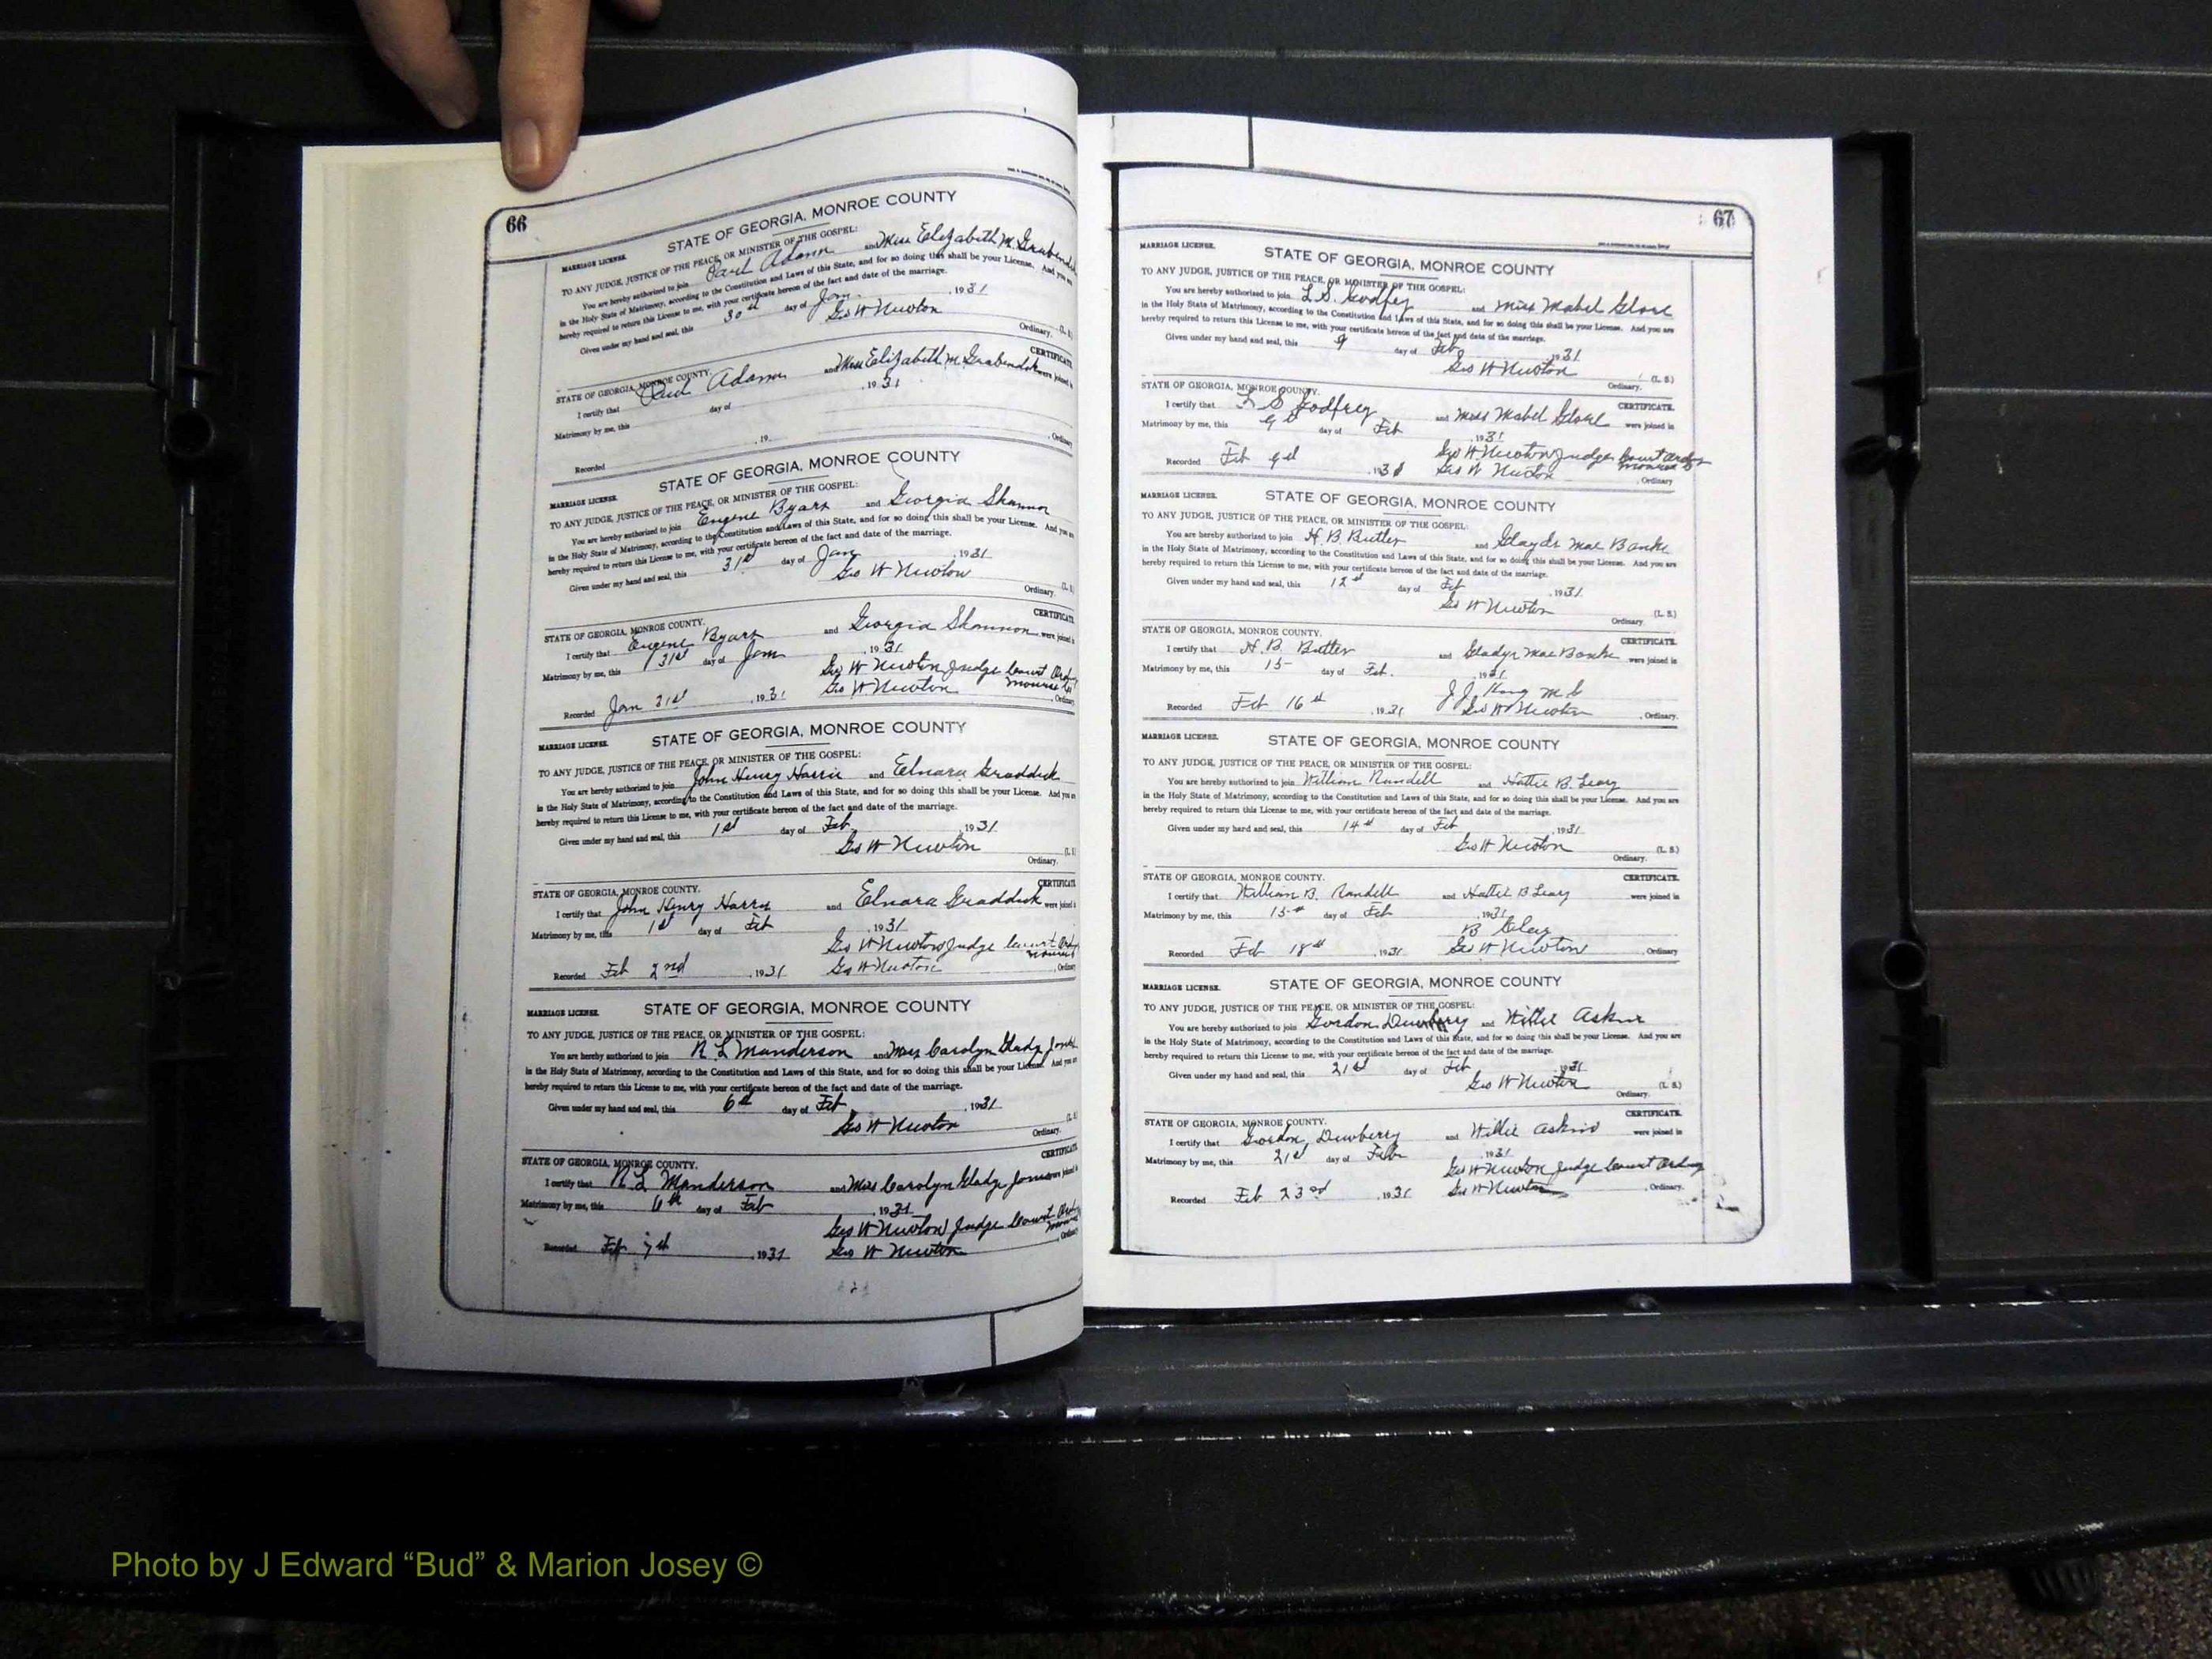 66
STATE OF GEORGIA, MONROE COUNTY
MARRIAGE LICENSE.
TO ANY JUDGE, JUSTICE OF THE PEACE, OR MINISTER OF THE GOSPEL:
You are hereby authorized to join Paul Adams and Miss Elizabeth M.
in the Holy State of Matrimony, according to the Constitution and Laws of this State, and for so doing this shall be your License. And you are
hereby required to return this License to me, with your certificate hereon of the fact and date of the marriage.
Given under my hand and seal, this 30th day of Jan. , 1931
Geo W Newton
Ordinary. (L. S.)
CERTIFICATE.
STATE OF GEORGIA, MONROE COUNTY.
I certify that Paul Adams and Miss Elizabeth M. were joined in
Matrimony by me, this day of , 1931
Recorded , 19 , Ordinary
STATE OF GEORGIA, MONROE COUNTY
MARRIAGE LICENSE.
TO ANY JUDGE, JUSTICE OF THE PEACE, OR MINISTER OF THE GOSPEL:
You are hereby authorized to join Eugene Byars and Georgia Shannon
in the Holy State of Matrimony, according to the Constitution and Laws of this State, and for so doing this shall be your License. And you are
hereby required to return this License to me, with your certificate hereon of the fact and date of the marriage.
Given under my hand and seal, this 31st day of Jan , 1931
Geo W Newton
Ordinary. (L. S.)
CERTIFICATE.
STATE OF GEORGIA, MONROE COUNTY.
I certify that Eugene Byars and Georgia Shannon were joined in
Matrimony by me, this 31st day of Jan , 1931
Geo W Newton Judge Court Ord
Monroe Co
Recorded Jan 31st , 1931 Geo W Newton , Ordinary
STATE OF GEORGIA, MONROE COUNTY
MARRIAGE LICENSE.
TO ANY JUDGE, JUSTICE OF THE PEACE, OR MINISTER OF THE GOSPEL:
You are hereby authorized to join John Henry Harris and Elnora Graddick
in the Holy State of Matrimony, according to the Constitution and Laws of this State, and for so doing this shall be your License. And you are
hereby required to return this License to me, with your certificate hereon of the fact and date of the marriage.
Given under my hand and seal, this 1st day of Feb. , 1931
Geo W Newton
(L. S.)
Ordinary.
CERTIFICATE
STATE OF GEORGIA, MONROE COUNTY.
I certify that John Henry Harris and Elnora Graddick were joined in
Matrimony by me, this 1st day of Feb , 1931
Geo W Newton Judge Court Ord
Monroe
Recorded Feb 2nd , 1931 Geo W Newton , Ordinary
STATE OF GEORGIA, MONROE COUNTY
MARRIAGE LICENSE.
TO ANY JUDGE, JUSTICE OF THE PEACE, OR MINISTER OF THE GOSPEL:
You are hereby authorized to join R L Manderson and Miss Carolyn Gladys Jones
in the Holy State of Matrimony, according to the Constitution and Laws of this State, and for so doing this shall be your License. And you are
hereby required to return this License to me, with your certificate hereon of the fact and date of the marriage.
Given under my hand and seal, this 6th day of Feb , 1931
Geo W Newton
(L. S.)
Ordinary.
CERTIFICATE
STATE OF GEORGIA, MONROE COUNTY.
I certify that R L Manderson and Miss Carolyn Gladys Jones were joined in
Matrimony by me, this 6th day of Feb , 1931
Geo W Newton Judge Court Ord
Monroe
Recorded Feb 7th , 1931 Geo W Newton , Ordinary
67
MARRIAGE LICENSE.
STATE OF GEORGIA, MONROE COUNTY
TO ANY JUDGE, JUSTICE OF THE PEACE, OR MINISTER OF THE GOSPEL:
You are hereby authorized to join L. S. Godfrey and Miss Mabel
in the Holy State of Matrimony, according to the Constitution and Laws of this State, and for so doing this shall be your License. And you are
hereby required to return this License to me, with your certificate hereon of the fact and date of the marriage.
Given under my hand and seal, this 9 day of Feb , 1931
Geo W Newton
(L. S.)
Ordinary.
STATE OF GEORGIA, MONROE COUNTY.
CERTIFICATE.
I certify that L S Godfrey and Miss Mabel were joined in
Matrimony by me, this 9th day of Feb , 1931
Geo W. Newton Judge Court Ordry
Monroe Co
Recorded Feb 9th , 1931 Geo W Newton , Ordinary
MARRIAGE LICENSE.
STATE OF GEORGIA, MONROE COUNTY
TO ANY JUDGE, JUSTICE OF THE PEACE, OR MINISTER OF THE GOSPEL:
You are hereby authorized to join H. B. Butler and Gladys Mae Banks
in the Holy State of Matrimony, according to the Constitution and Laws of this State, and for so doing this shall be your License. And you are
hereby required to return this License to me, with your certificate hereon of the fact and date of the marriage.
Given under my hand and seal, this 12th day of Feb , 1931
Geo W Newton
(L. S.)
Ordinary.
STATE OF GEORGIA, MONROE COUNTY.
CERTIFICATE.
I certify that H. B. Butler and Gladys Mae Banks were joined in
Matrimony by me, this 15 day of Feb. , 1931
J. J. King M G
Recorded Feb 16th , 1931 Geo W Newton , Ordinary.
MARRIAGE LICENSE.
STATE OF GEORGIA, MONROE COUNTY
TO ANY JUDGE, JUSTICE OF THE PEACE, OR MINISTER OF THE GOSPEL:
You are hereby authorized to join William Randell and Hattie B. Leary
in the Holy State of Matrimony, according to the Constitution and Laws of this State, and for so doing this shall be your License. And you are
hereby required to return this License to me, with your certificate hereon of the fact and date of the marriage.
Given under my hand and seal, this 14th day of Feb , 1931
Geo W Newton
(L. S.)
Ordinary.
STATE OF GEORGIA, MONROE COUNTY.
CERTIFICATE.
I certify that William B. Randell and Hattie B Leary were joined in
Matrimony by me, this 15th day of Feb , 1931
B
Recorded Feb 18th , 1931 Geo W Newton , Ordinary
MARRIAGE LICENSE.
STATE OF GEORGIA, MONROE COUNTY
TO ANY JUDGE, JUSTICE OF THE PEACE, OR MINISTER OF THE GOSPEL:
You are hereby authorized to join Gordon Dewberry and Willie Askin
in the Holy State of Matrimony, according to the Constitution and Laws of this State, and for so doing this shall be your License. And you are
hereby required to return this License to me, with your certificate hereon of the fact and date of the marriage.
Given under my hand and seal, this 21st day of Feb , 1931
Geo W Newton
(L. S.)
Ordinary.
CERTIFICATE.
STATE OF GEORGIA, MONROE COUNTY.
I certify that Gordon Dewberry and Willie Askins were joined in
Matrimony by me, this 21st day of Feb , 1931
Geo W Newton Judge Court Ordry
Recorded Feb 23rd , 1931 Geo W Newton , Ordinary.
Photo by J Edward “Bud” & Marion Josey ©